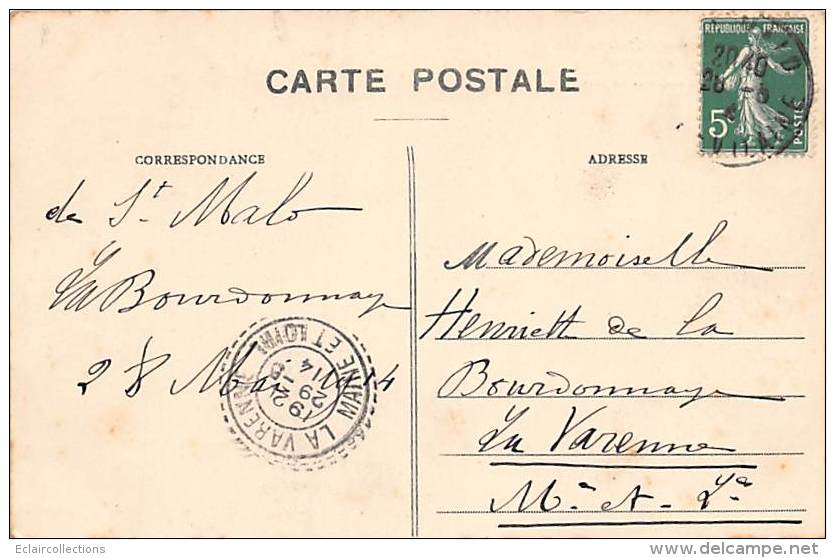 CARTE POSTALE
REPUBLIQUE FRANÇAISE
5c
POSTES
CORRESPONDANCE
ADRESSE
de St Malo
La Bourdonnaye
28 Mai 1914
Mademoiselle
Henriette de la
Bourdonnaye
La Varenne
Mne & Lre
LA VARENNE
MAINE ET LOIRE
29
14
Eclaircollections
©delcampe.net